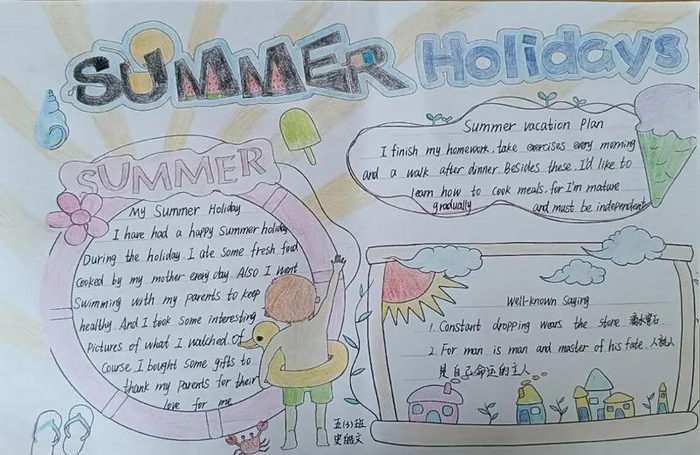 SUMMER Holidays
SUMMER
My Summer Holiday
I have had a happy summer holiday.
During the holiday. I ate some fresh food
cooked by my mother every day. Also I went
Swimming with my parents to keep
healthy. And I took some interesting
pictures of what I watched. Of
Course I bought some gifts to
thank my parents for their
love for me
Summer vacation Plan
I finish my homework. take exercises every morning
and a walk after dinner. Besides these. I'd like to
learn how to cook meals. for I'm mature
gradually and must be independent
Well-known Saying
1. Constant dropping wears the stone 滴水穿石
2. For man is man and master of his fate. 人
是自己命运的主人
五(3)班